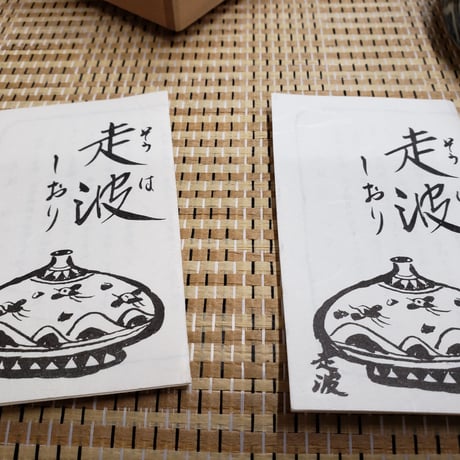 走波
そうは
しおり
走波
そうは
しおり
走波